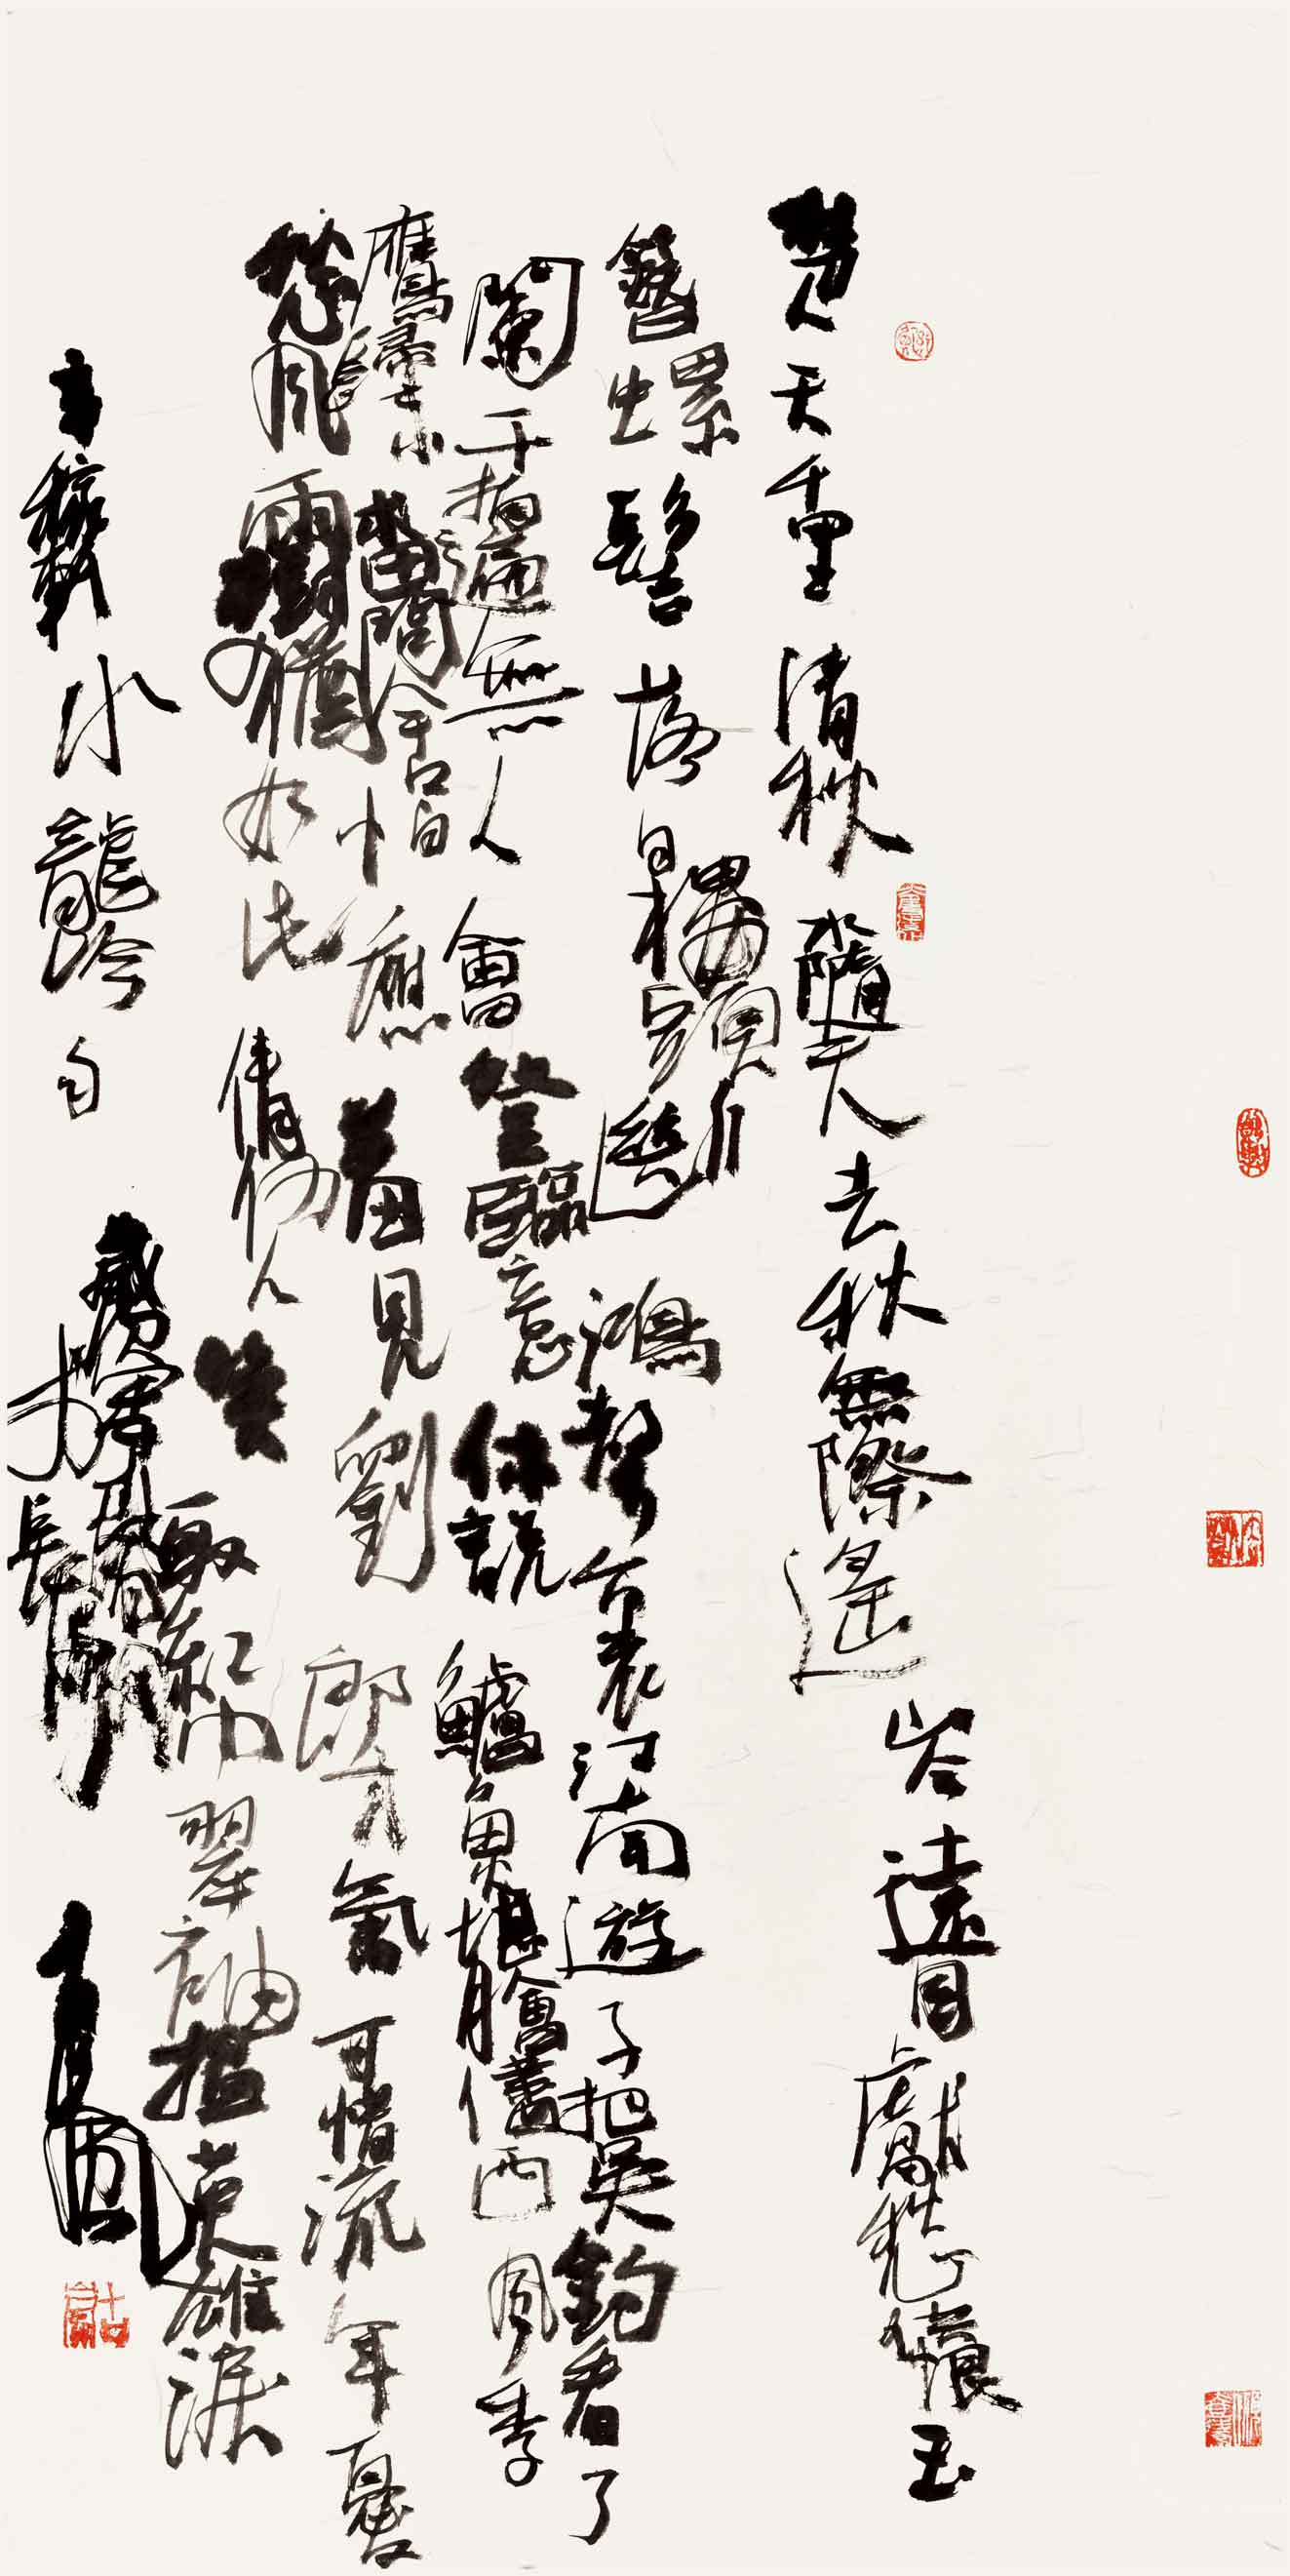 楚天千里清秋水隨天去秋無際遙岑遠目獻愁供恨玉
簪螺髻落日樓頭斷鴻聲裏江南遊子把吳鈎看了
闌干拍遍無人會登臨意休說鱸魚堪膾儘西風季
鷹歸未求田問舍怕應羞見劉郎才氣可惜流年憂
愁風雨樹猶如此倩何人喚取紅巾翠袖揾英雄淚
辛稼軒水龍吟句